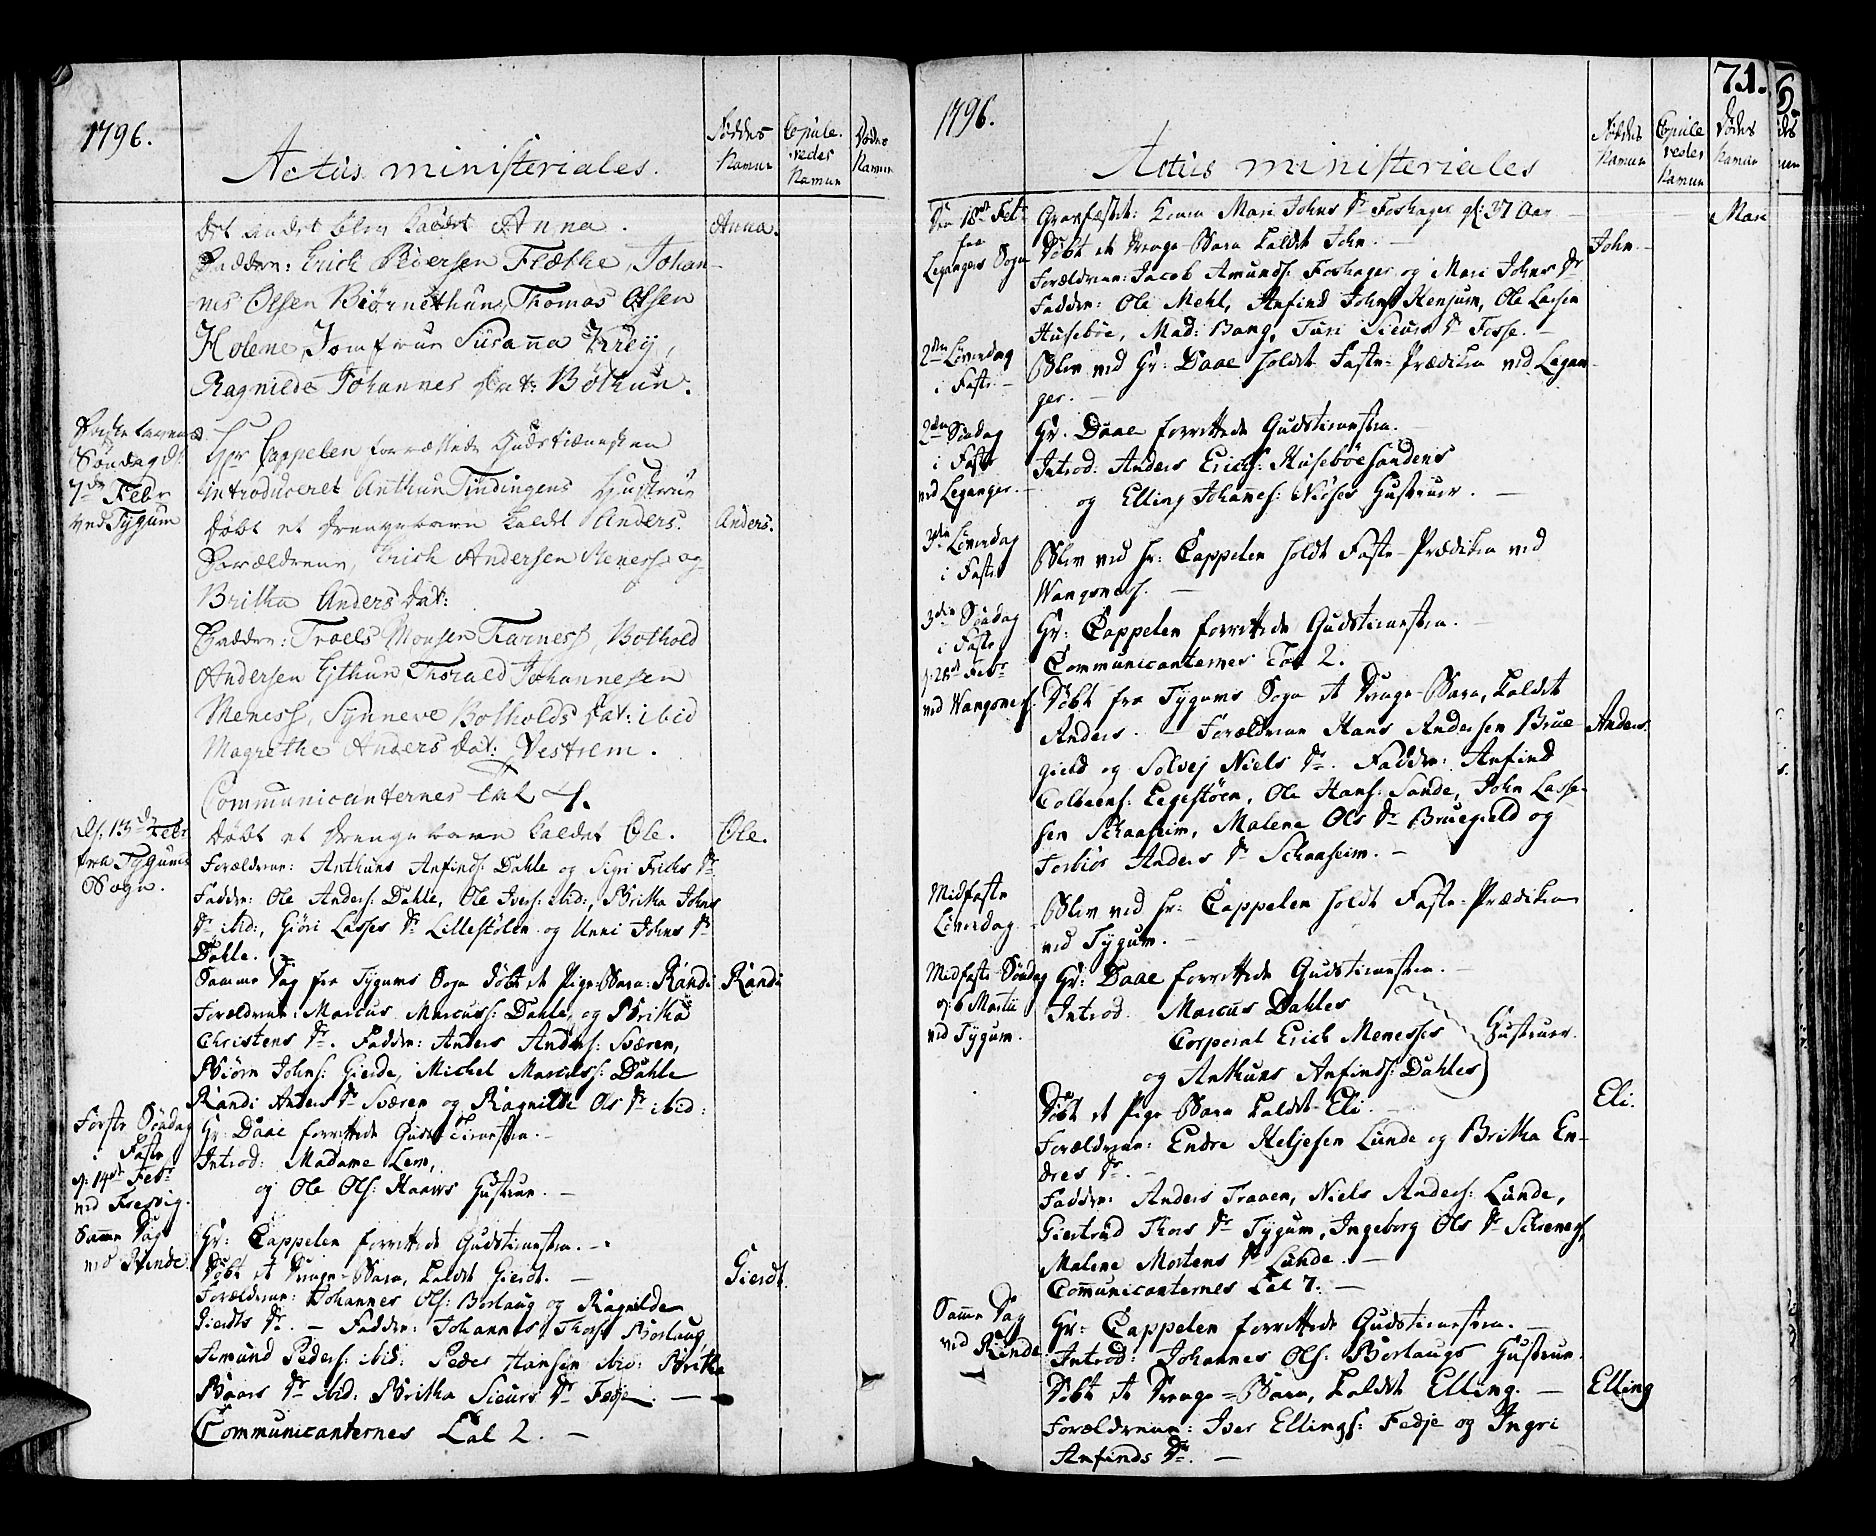 1796.
Actus ministeriales.
Føddes Namne
Copule-redes Namne
Dødes Namne
Det andet blev kaldet Anna.
Anna.
Faddere: Erich Pedersen Flæthe, Johan-
nes Olsen Biørnethun, Thomas Olsen
Holene, Jomfrue Susanna Krey,
Ragnilde Johannes Dat: Bøthun.
Søndag d:
7de Febr
ved Tygum
Hr Cappelen forrættede Gudstienesten
introduceret Anthun Tindingens Hustrue
Døbt et Drengebarn kaldt Anders.
Anders.
Forældrene, Erich Andersen Meness og
Britha Anders Dat:
Faddere: Troels Monsen Tiarness, Bothold
Andersen Eithun, Thorald Johannesen
Meness, Synneve Botholds Dat: ibid
Magrethe Anders Dat: Vestrem.
Communicanternes Tal 4.
d: 13de Febr
fra Tygums
Sogn.
Døbt et Drengebarn kaldet Ole.
Ole.
Forældrene: Anthuns Anfinds: Dahle og Sigri Erichs Dr
Faddere: Ole Anders: Dahle, Ole Ivers: ibid:, Britha Johns
Dr ibid:, Giøri Lasses Dr Lillestølen og Unni Johns Dr
Dahle.
Samme Dag fra Tygums Sogn døbt et Pige-Barn: Randi
Randi
Forældrene: Marcus Marcuss: Dahle, og Britha
Christens Dr. Faddere: Anders Anders: Sværen,
Biørn Johns: Gierde, Michel Marcuss: Dahle
Randi Anders Dr Sværen og Ragnilde Ols Dr ibid:
Første Søndag
i Faste
d: 14de Febr
ved Fresvig.
Hr: Daae forrettede Gudstienesten.
Introd: Madame Lem,
og Ole Ols: Haaves Hustrue.
Samme Dag
ved Rinde
Hr: Cappelen forrettede Gudstienesten.
Døbt et Drenge-Barn, kaldet Gierdt.
Gierdt
Forældrene: Johannes Ols: Borlaug og Ragnilde
Gierdts Dr. – Faddere: Johannes Thors: Borlaug
Amund Peders: ibid: Peder Hansen ibid: Britha
Baars Dr ibid: Britha Siurs Dr Fedje. –
Communicanternes Tal 2. –
71.
1796.
Actus ministeriales
Føddes Namne
Copule redes Namne
Dødes Namne
Den 18de Feb:
fra
Legangers Sogn
Gravfæstet: Kone Mari Johns Dr Foshager gl: 37 Aar
Mari
Døbt et Drenge-Barn kaldet John. –
John
Forældrene: Jacob Amunds: Foshager og Mari Johns Dr
Faddere: Ole Mehl, Anfind Johns: Henjum, Ole Larsen
Husebøe, Mad: Bang, Turi Siurs Dr Fosse. –
2den Løverdag
i Faste –
Blev ved Hr: Daae holdt Faste-Prædiken ved Legan-
ger. –
2den Søndag
i Faste
ved Leganger.
Hr. Daae forrettede Gudstienesten.
Introd: Anders Erichs: Husebøesandens
og Elling Johannes: Niøses Hustruer. –
3die Løverdag
i Faste
Blev ved Hr: Cappelen holdt Faste-Prædiken ved
Wangsness. –
3die Søndag
i Faste
d: 28de Febr
ved Wangsness.
Hr: Cappelen forrettede Gudstienesten. –
Communicanternes Tal 2.
Døbt fra Tygums Sogn et Drenge-Barn, kaldet
Anders. – Forældrene Hans Andersen Brue-
Anders.
gield og Solvej Niels Dr. Faddere: Anfind
Colbeens: Legestøen, Ole Hans: Sande, John Lasse-
sen Schaaheim, Malene Ols Dr Bruegield og
Torbiør Anders Dr Schaaheim. –
Midfaste
Løverdag
Blev ved Hr: Cappelen holdt Faste-Prædiken
ved Tygum. –
Midfaste Søndag
d: 6 Martii
ved Tygum.
Hr: Daae forrettede Gudstienesten. –
Introd. Marcus Dahles
Corporal Erich Menesses Hustruer.
og Anthuns Anfinds: Dahles
Døbt et Pige-Barn kaldet Eli.
Eli.
Forældrene: Endre Heljesen Lunde og Britha En-
dres Dr. –
Faddere: Anders Traaen, Niels Anders: Lunde,
Giertrud Thors Dr Tygum, Ingeborg Ols Dr Schreness,
Malene Mortens Dr Lunde. –
Communicanternes Tal 7. –
Samme Dag
ved Rinde
Hr: Cappelen forrettede Gudstienesten. –
Introd: Johannes Ols: Borlaugs Hustrue.
Døbt et Drenge-Barn, kaldet Elling. –
Elling
Forældrene: Iver Ellings: Fedje og Ingri
Anfinds Dr. –